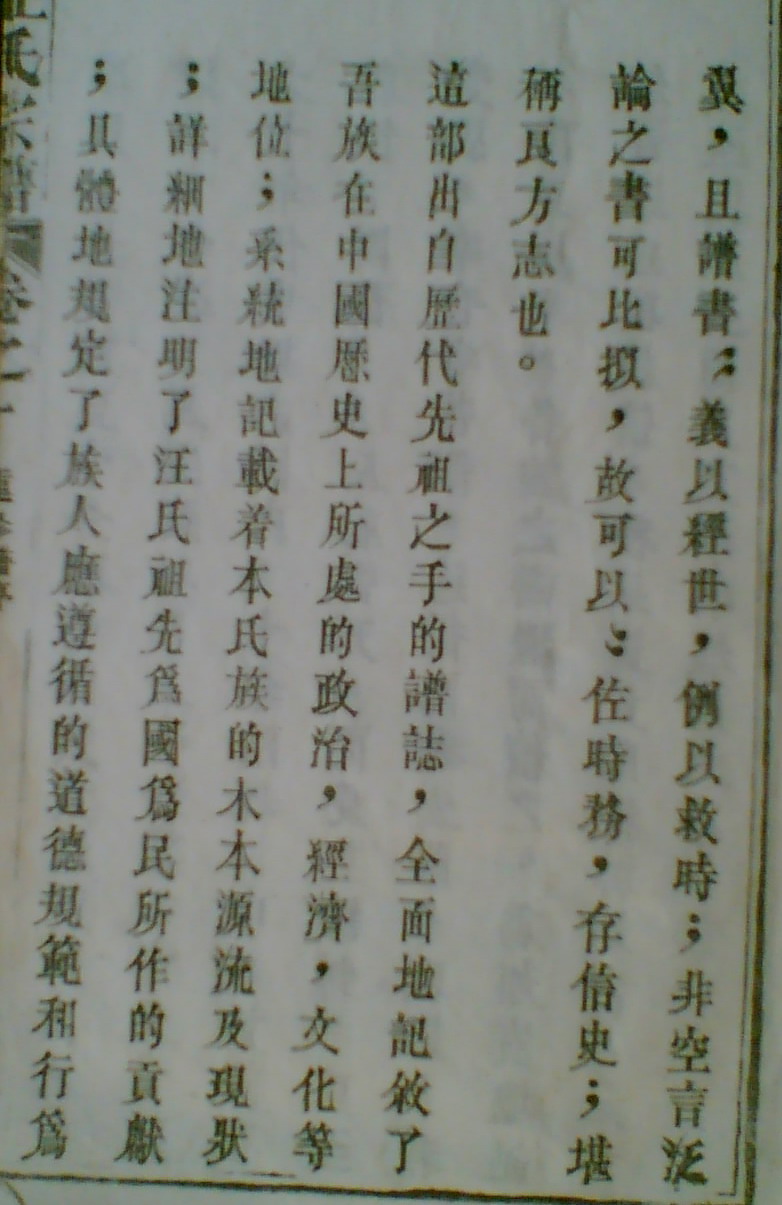 翼，且譜書；義以經世，例以救時；非空言泛
論之書可比擬，故可以；佐時務，存信史；堪
稱良方志也。
這部出自歷代先祖之手的譜誌，全面地記敘了
吾族在中國歷史上所處的政治，經濟，文化等
地位；系統地記載着本氏族的木本源流及現狀
；詳細地注明了汪氏祖先爲國爲民所作的貢獻
；具體地規定了族人應遵循的道德規範和行爲
氏宗譜 卷之一